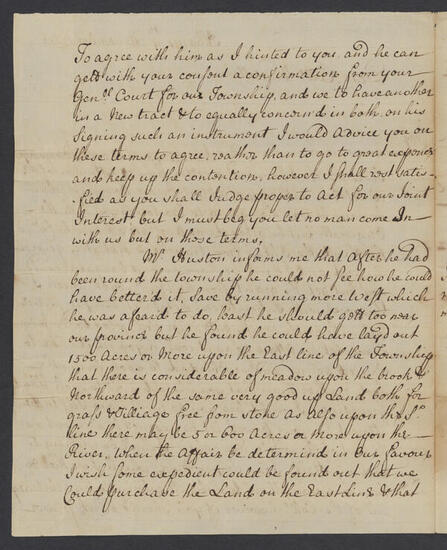 To agree with him as I hinted to you, and he can
gett with your consent a confirmation from your
Gen.ll Court for our Township, and we to have another
in a New tract & to equally concernd in both, on his
signing such an instrument I would Advice you on
these terms to agree, reather than to go to great expence
and keep up the contention, however I shall rest satis-
fied as you shall Judge proper to Act for our Joint
Interest but I must beg you let no man come In
with us but on those terms.
Mr Huston informs me that After he had
been round the township he could not see how he could
have better'd it, save by running more West which
he was afeard to do, least he should gett too near
our Province but he found he could have layd out
1500 Acres or More upon the East line of the Township
that there is considerable of meadow upon the brook &
Northward of the same very good up Land both for
grass & Tilliage free from stone as also upon the So
line there may be 5 or 600 Acres or More upon the
River, when the Affair be determind in Our favour
I wish some expedient could be found out that we
Could purchase the Land on the East Line & that